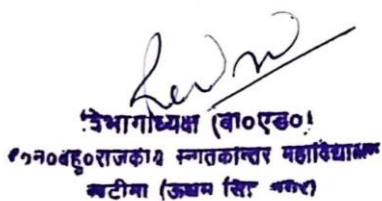 विभागाध्यक्ष (बी०एड०)
हे०न०ब०राजकीय स्नातकोत्तर महाविद्यालय
खटीमा (ऊधम सिंह नगर)